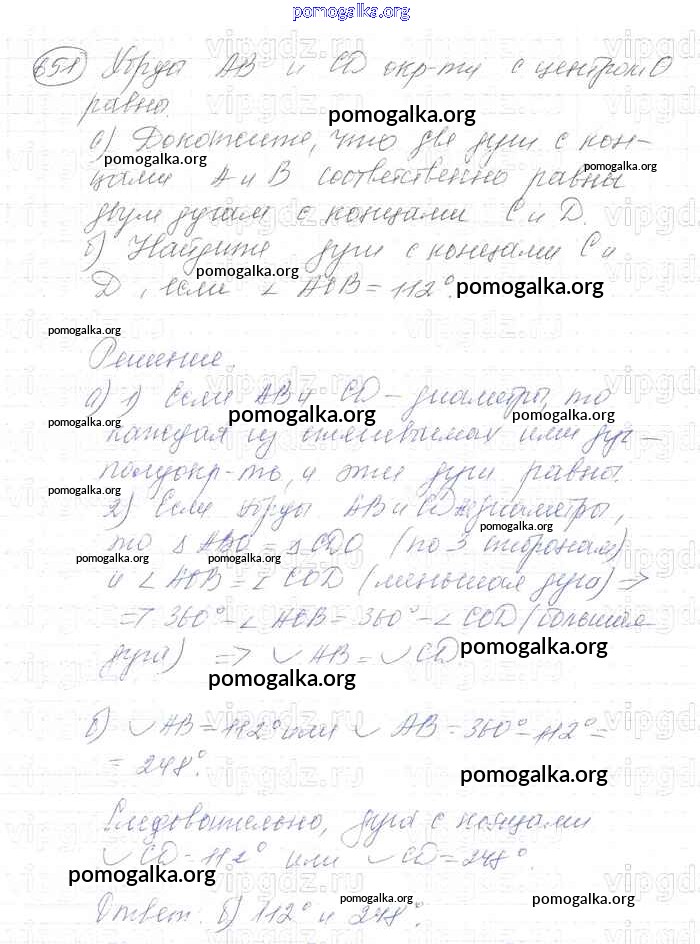 pomogalka.org
651 Хорды AB и CD окр-ти с центром O
равны.
pomogalka.org
а) Докажите, что две дуги с кон-
pomogalka.org
pomogalka.org
цами A и B соответственно равны
двум дугам с концами C и D.
б) Найдите дуги с концами C и
pomogalka.org
D, если ∠AOB = 112°.
pomogalka.org
pomogalka.org
Решение.
а) 1) Если AB и CD – диаметры, то
pomogalka.org
pomogalka.org
pomogalka.org
каждая из стягиваемых ими дуг –
полуокр-ть, и эти дуги равны.
pomogalka.org
2) Если хорды AB и CD не диаметры,
pomogalka.org
то △ABO = △CDO (по 3 сторонам)
pomogalka.org
pomogalka.org
и ∠AOB = ∠COD (меньшая дуга) ⇒
⇒ 360° - ∠AOB = 360° - ∠COD (большая
pomogalka.org
дуга) ⇒ ◡AB = ◡CD.
pomogalka.org
б) ◡AB = 112° или ◡AB = 360° - 112° =
= 248°.
pomogalka.org
Следовательно, дуга с концами
◡CD = 112° или ◡CD = 248°.
pomogalka.org
pomogalka.org
pomogalka.org
Ответ: б) 112° и 248°.